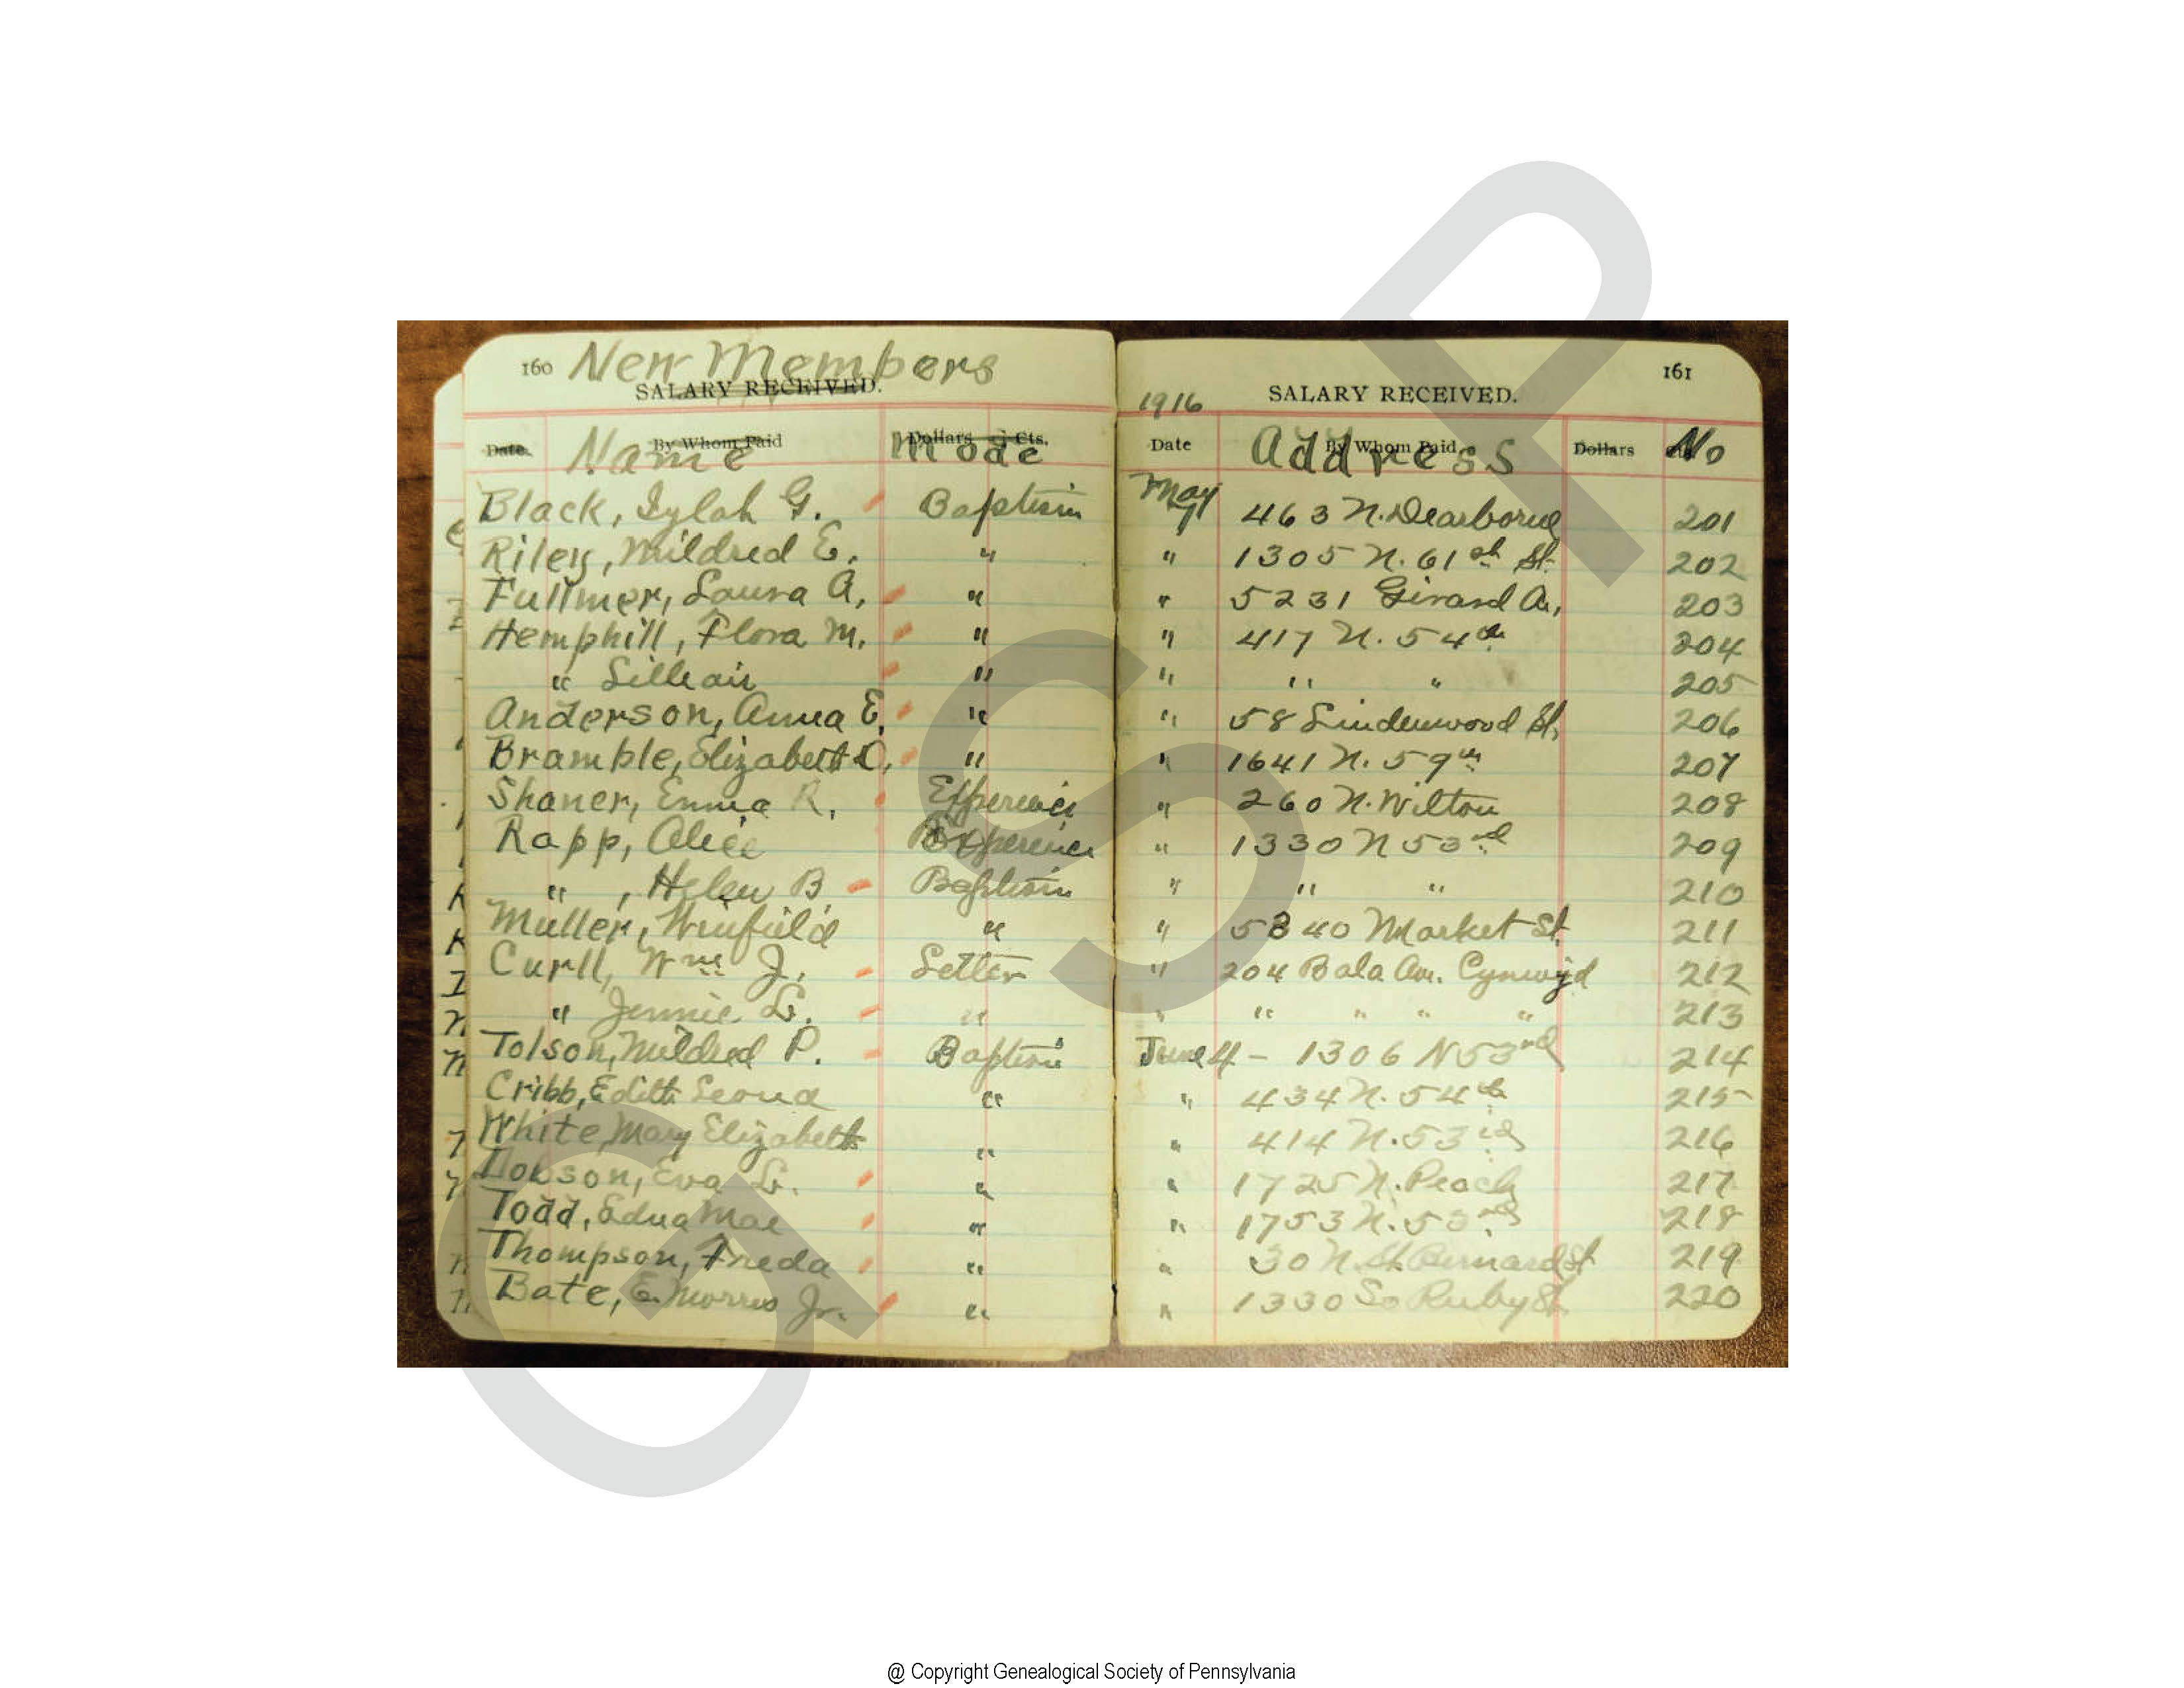 160 New Members
SALARY RECEIVED.
Date. By Whom Paid Dollars Cts.
Name Mode
Black, Zylah G. Baptism
Riley, Mildred E. "
Fullmer, Laura A. "
Hemphill, Flora M. "
" "
Anderson, Anna E. "
Bramble, Elizabeth "
Shaner, Emma R. Experience
Rapp, Alice Experience
" , Helen B. Baptism
Muller, Winfield "
Curll, Wm J. Letter
" Jennie L. "
Tolson, Mildred P. Baptism
Cribb, Edith Leona "
White, Mary Elizabeth "
Dobson, Eva L. "
Todd, Edna Mae "
Thompson, Freda "
Bate, E. Morris Jr. "
161
SALARY RECEIVED.
1916
Date By Whom Paid. Dollars
Address No
May 7 463 N. Dearborne 201
" 1305 N. 61st St. 202
" 5231 Girard Av. 203
" 417 N. 54th 204
" " " 205
" 58 Lindenwood St. 206
" 1641 N. 59th 207
" 260 N. Wilton 208
" 1330 N 53rd 209
" " " 210
" 5840 Market St. 211
" 204 Bala Av. Cynwyd 212
" " " " " 213
June 4 - 1306 N 53rd 214
" 434 N. 54th 215
" 414 N. 53rd 216
" 1725 N. Peach 217
" 1753 N. 53rd 218
" 30 N. St. Bernard St 219
" 1330 So Ruby St. 220
GSP
@ Copyright Genealogical Society of Pennsylvania